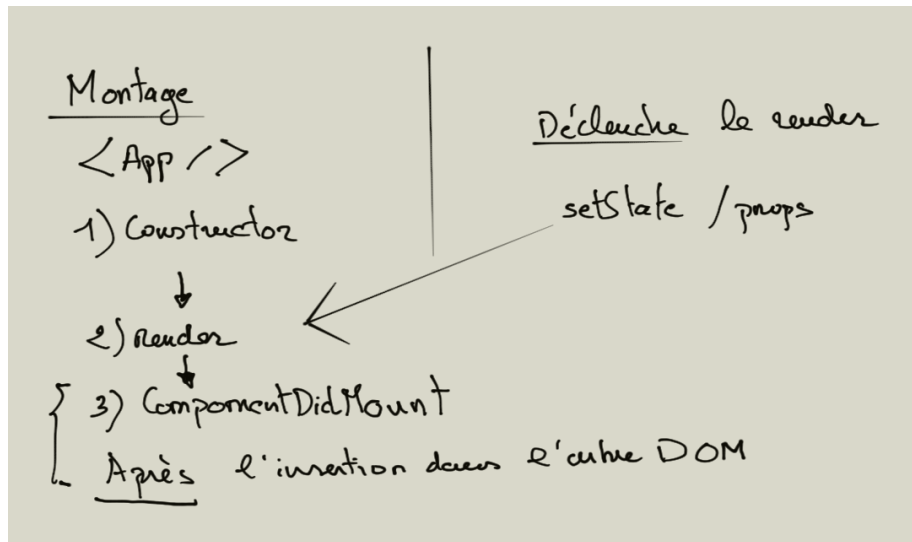 Montage
<App />
1) Constructor
2) render
3) ComponentDidMount
Après l'insertion dans l'arbre DOM
Déclenche le render
setState / props